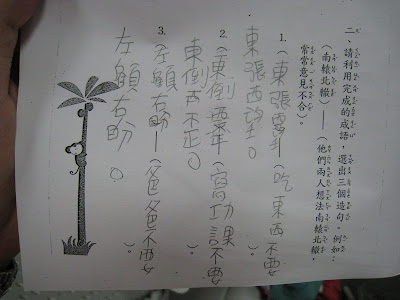 二、請利用完成的成語，選出三個造句。例如：
（南轅北轍）——（他們兩人想法南轅北轍，
常常意見不合）。
1.（東張—（吃東西不要
東張西望。）。
2.（東倒—（寫功課不要
東倒西歪。）。
3.（左顧右盼—（爸爸不要
左顧右盼。）。